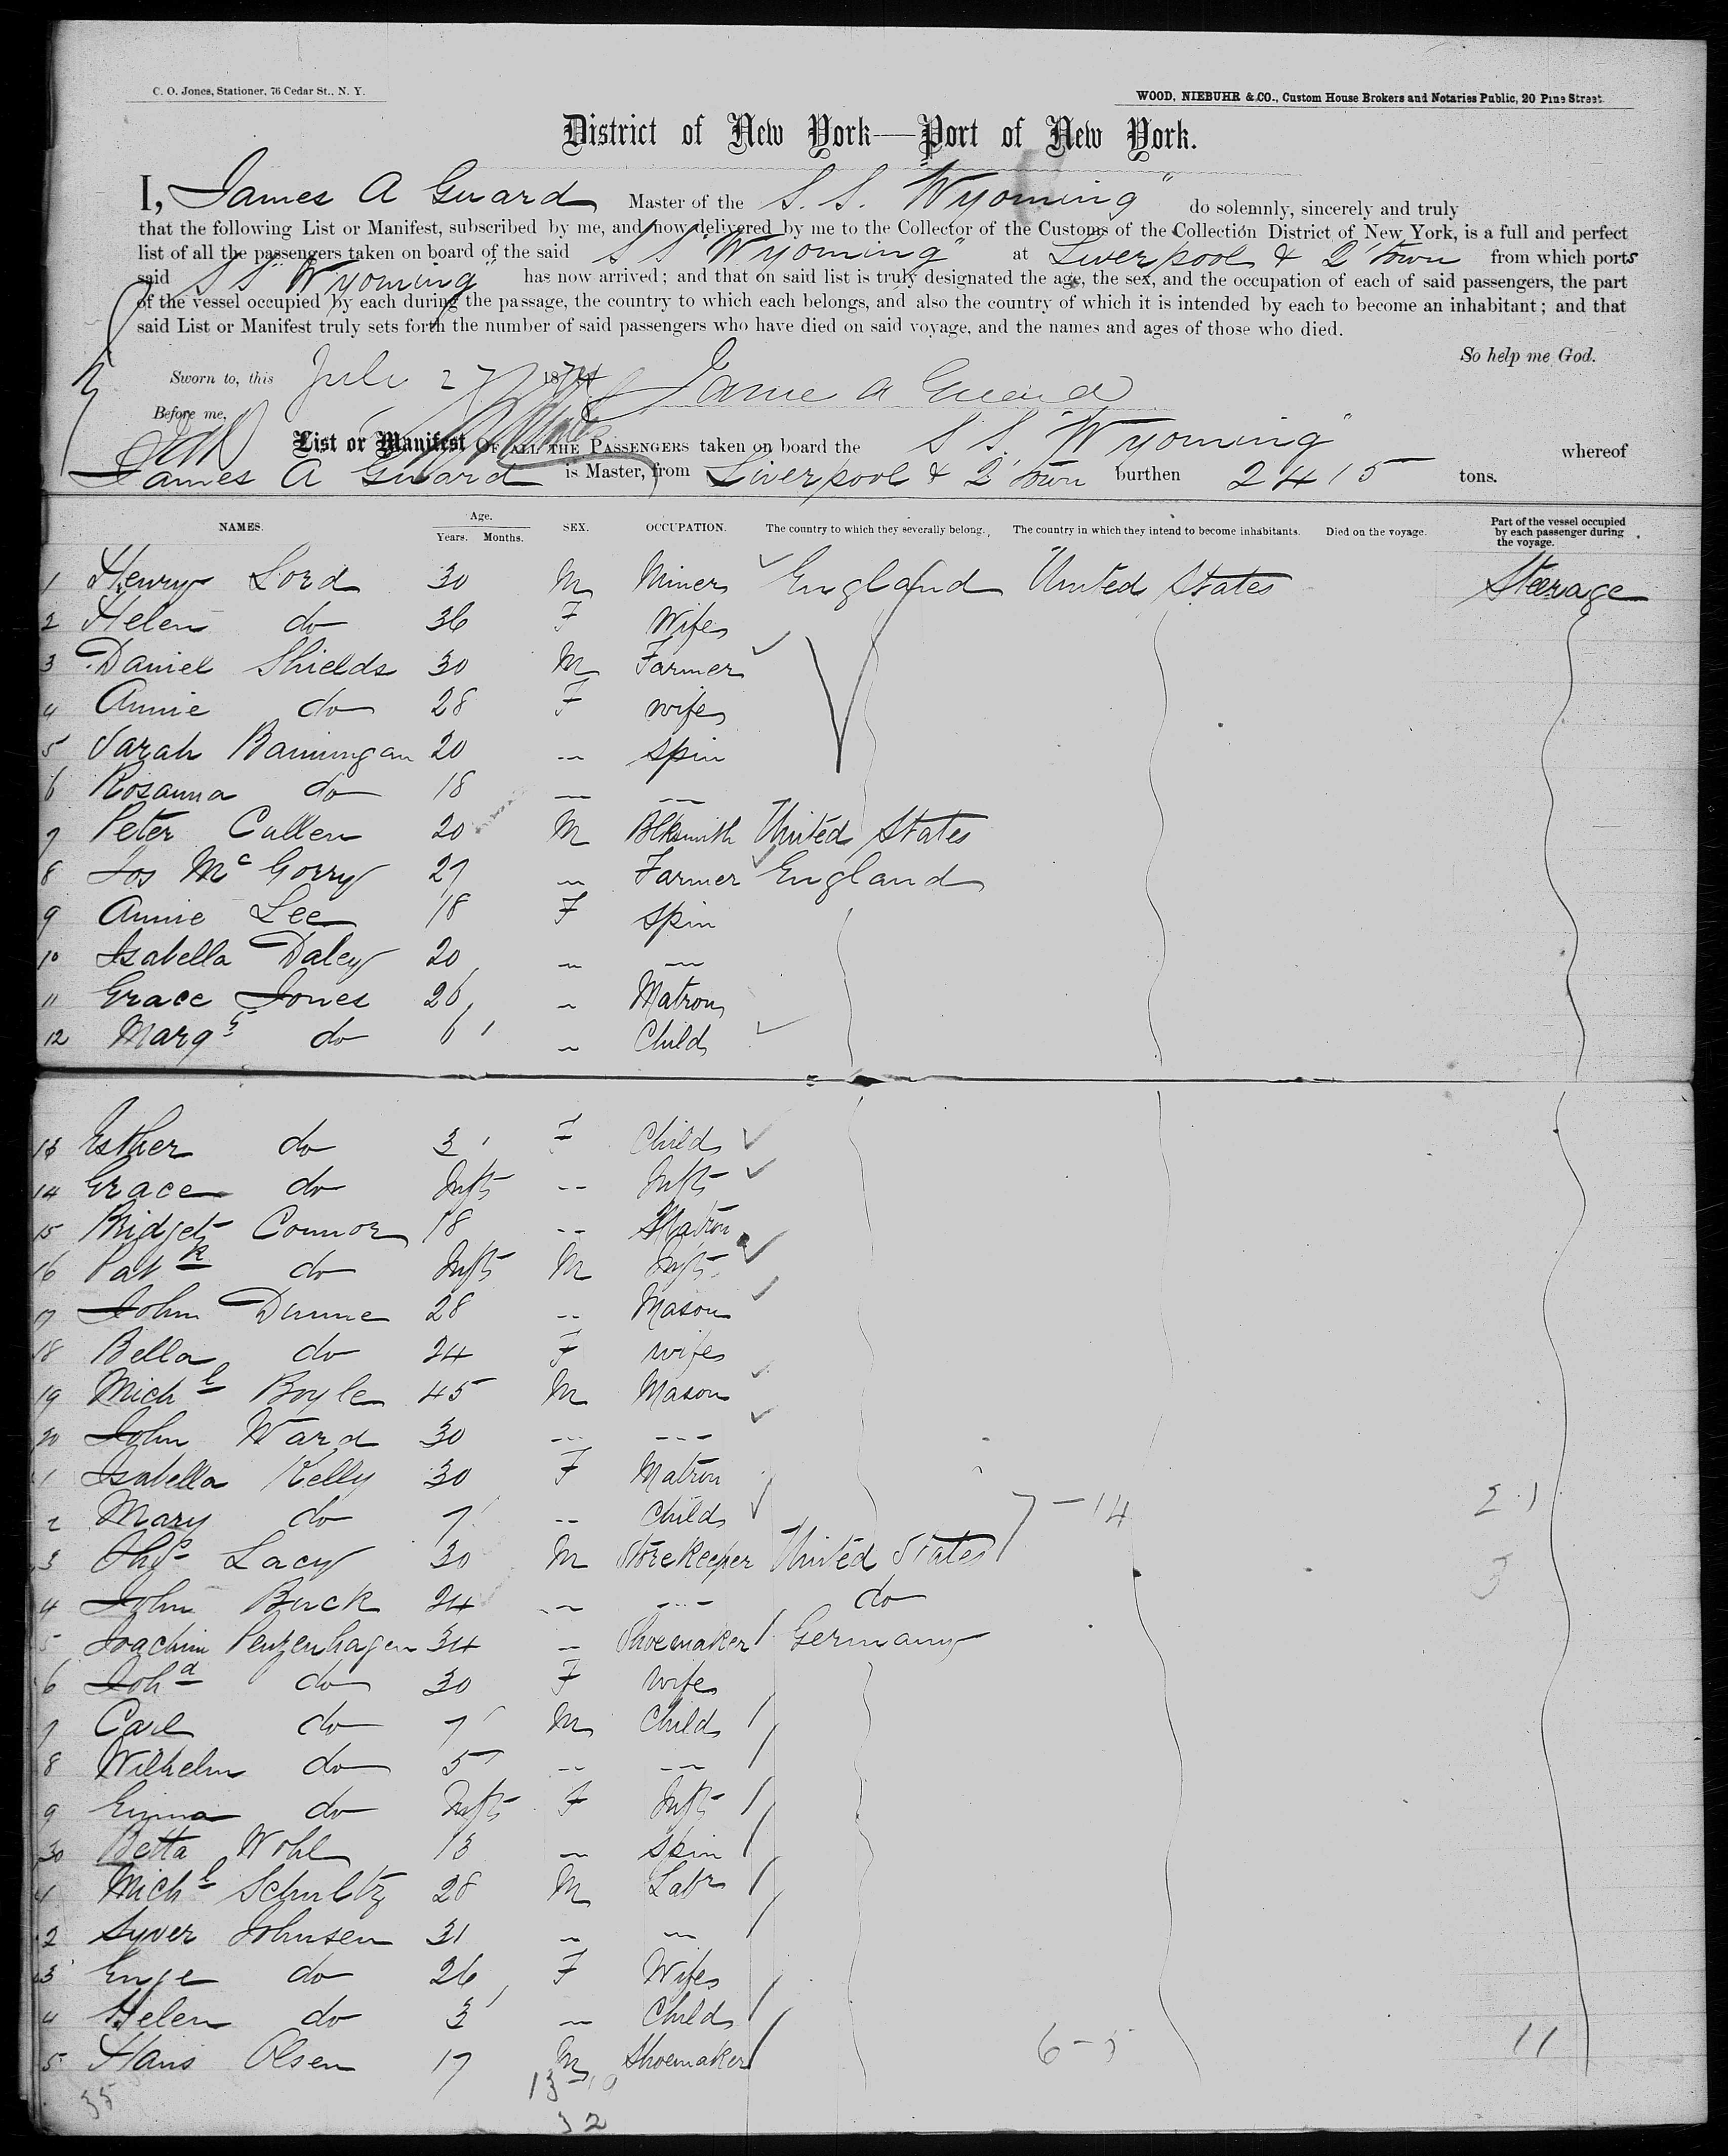 C. O. Jones, Stationer, 76 Cedar St., N. Y.
WOOD, NIEBUHR & CO., Custom House Brokers and Notaries Public, 20 Pine Street.
District of New York—Port of New York.
I, James A Guard Master of the S. S. "Wyoming" do solemnly, sincerely and truly
that the following List or Manifest, subscribed by me, and now delivered by me to the Collector of the Customs of the Collection District of New York, is a full and perfect
list of all the passengers taken on board of the said S S "Wyoming" at Liverpool & Q'town from which ports
said S S "Wyoming" has now arrived; and that on said list is truly designated the age, the sex, and the occupation of each of said passengers, the part
of the vessel occupied by each during the passage, the country to which each belongs, and also the country of which it is intended by each to become an inhabitant; and that
said List or Manifest truly sets forth the number of said passengers who have died on said voyage, and the names and ages of those who died.
So help me God.
Sworn to, this July 27 1874 James A Guard
Before me,
List or Manifest OF ALL THE PASSENGERS taken on board the S S "Wyoming" whereof
James A Guard is Master, from Liverpool & Q'town burthen 2415 tons.
NAMES. Age. Years. Months. SEX. OCCUPATION. The country to which they severally belong. The country in which they intend to become inhabitants. Died on the voyage. Part of the vessel occupied by each passenger during the voyage.
1 Henry Lord 30 M Miner England United States Steerage
2 Helen do 36 F Wife
3 Daniel Shields 30 M Farmer
4 Annie do 28 F wife
5 Sarah Banningan 20 " spin
6 Rosanna do 18 " "
7 Peter Cullen 20 M Blksmith United States
8 Jos McGorry 27 " Farmer England
9 Annie Lee 18 F spin
10 Isabella Daley 20 " "
11 Grace Jones 26 " Matron
12 Margt do 6 " Child
13 Esther do 3 F Child
14 Grace do Inft -- Inft
15 Bridget Connor 18 -- Matron
16 Patk do Inft M Inft
17 John Dunne 28 -- Mason
18 Bella do 24 F wife
19 Michl Boyle 45 M Mason
20 John Ward 30 --- ---
1 Isabella Kelly 30 F Matron
2 Mary do 7 -- Child 7-14 21
3 Chas Lacy 30 M Storekeeper United States 3
4 John Buck 24 -- --- do
5 Joachim Penzenhagen 34 -- Shoemaker Germany
6 Joha do 30 F wife
7 Carl do 7 M Child
8 Wilhelm do 5 -- --
9 Emma do Inft F Inft
30 Betta Wohl 18 " spin
1 Michl Schultz 28 M Labr
2 Syver Johnsen 31 " "
3 Enge do 26 F Wife
4 Helen do 3 " Child
5 Hans Olsen 17 M Shoemaker 6-5 11
35
32